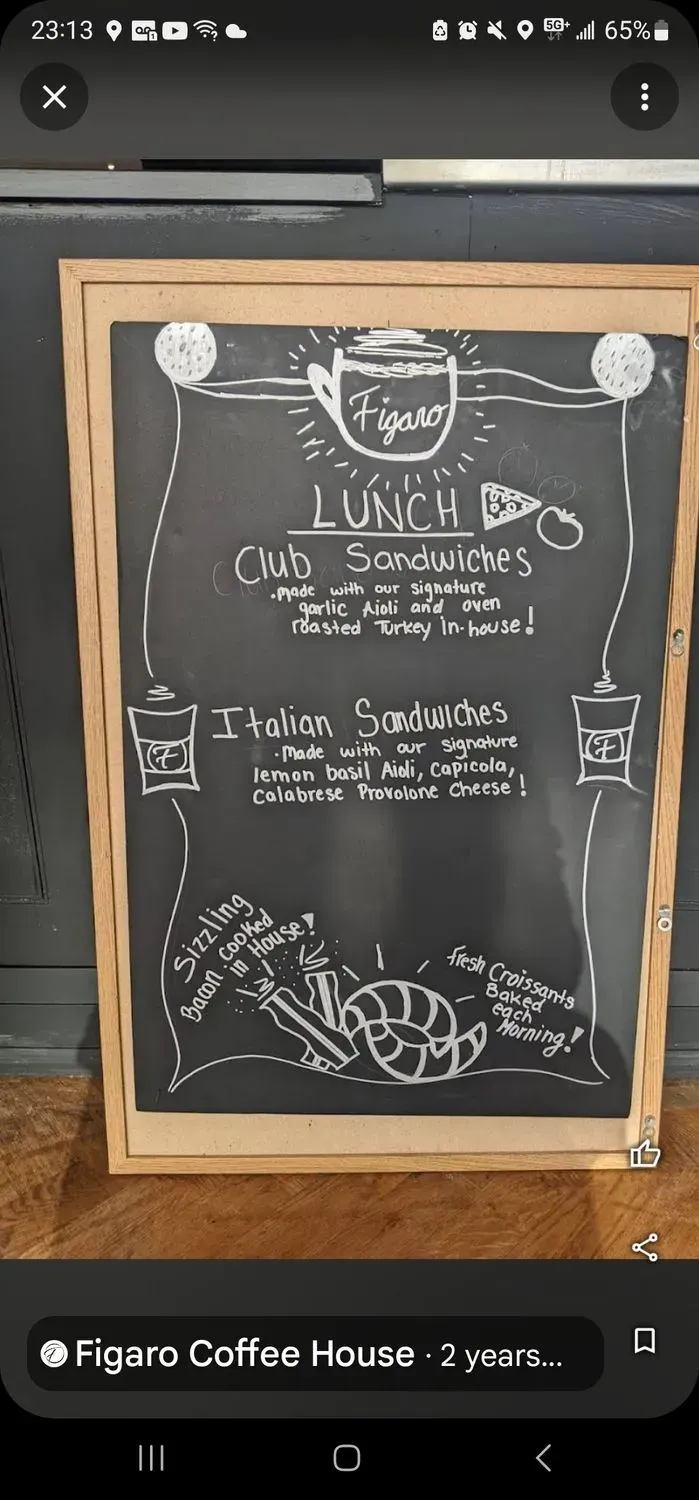 23:13
5G+
65%
Figaro
LUNCH
Club Sandwiches
.made with our signature
garlic Aioli and oven
roasted Turkey in-house!
Italian Sandwiches
.Made with our signature
lemon basil Aioli, Capicola,
Calabrese Provolone Cheese!
F
F
Sizzling
Bacon cooked
in House!
Fresh Croissants
Baked
each
Morning!
Figaro Coffee House · 2 years...